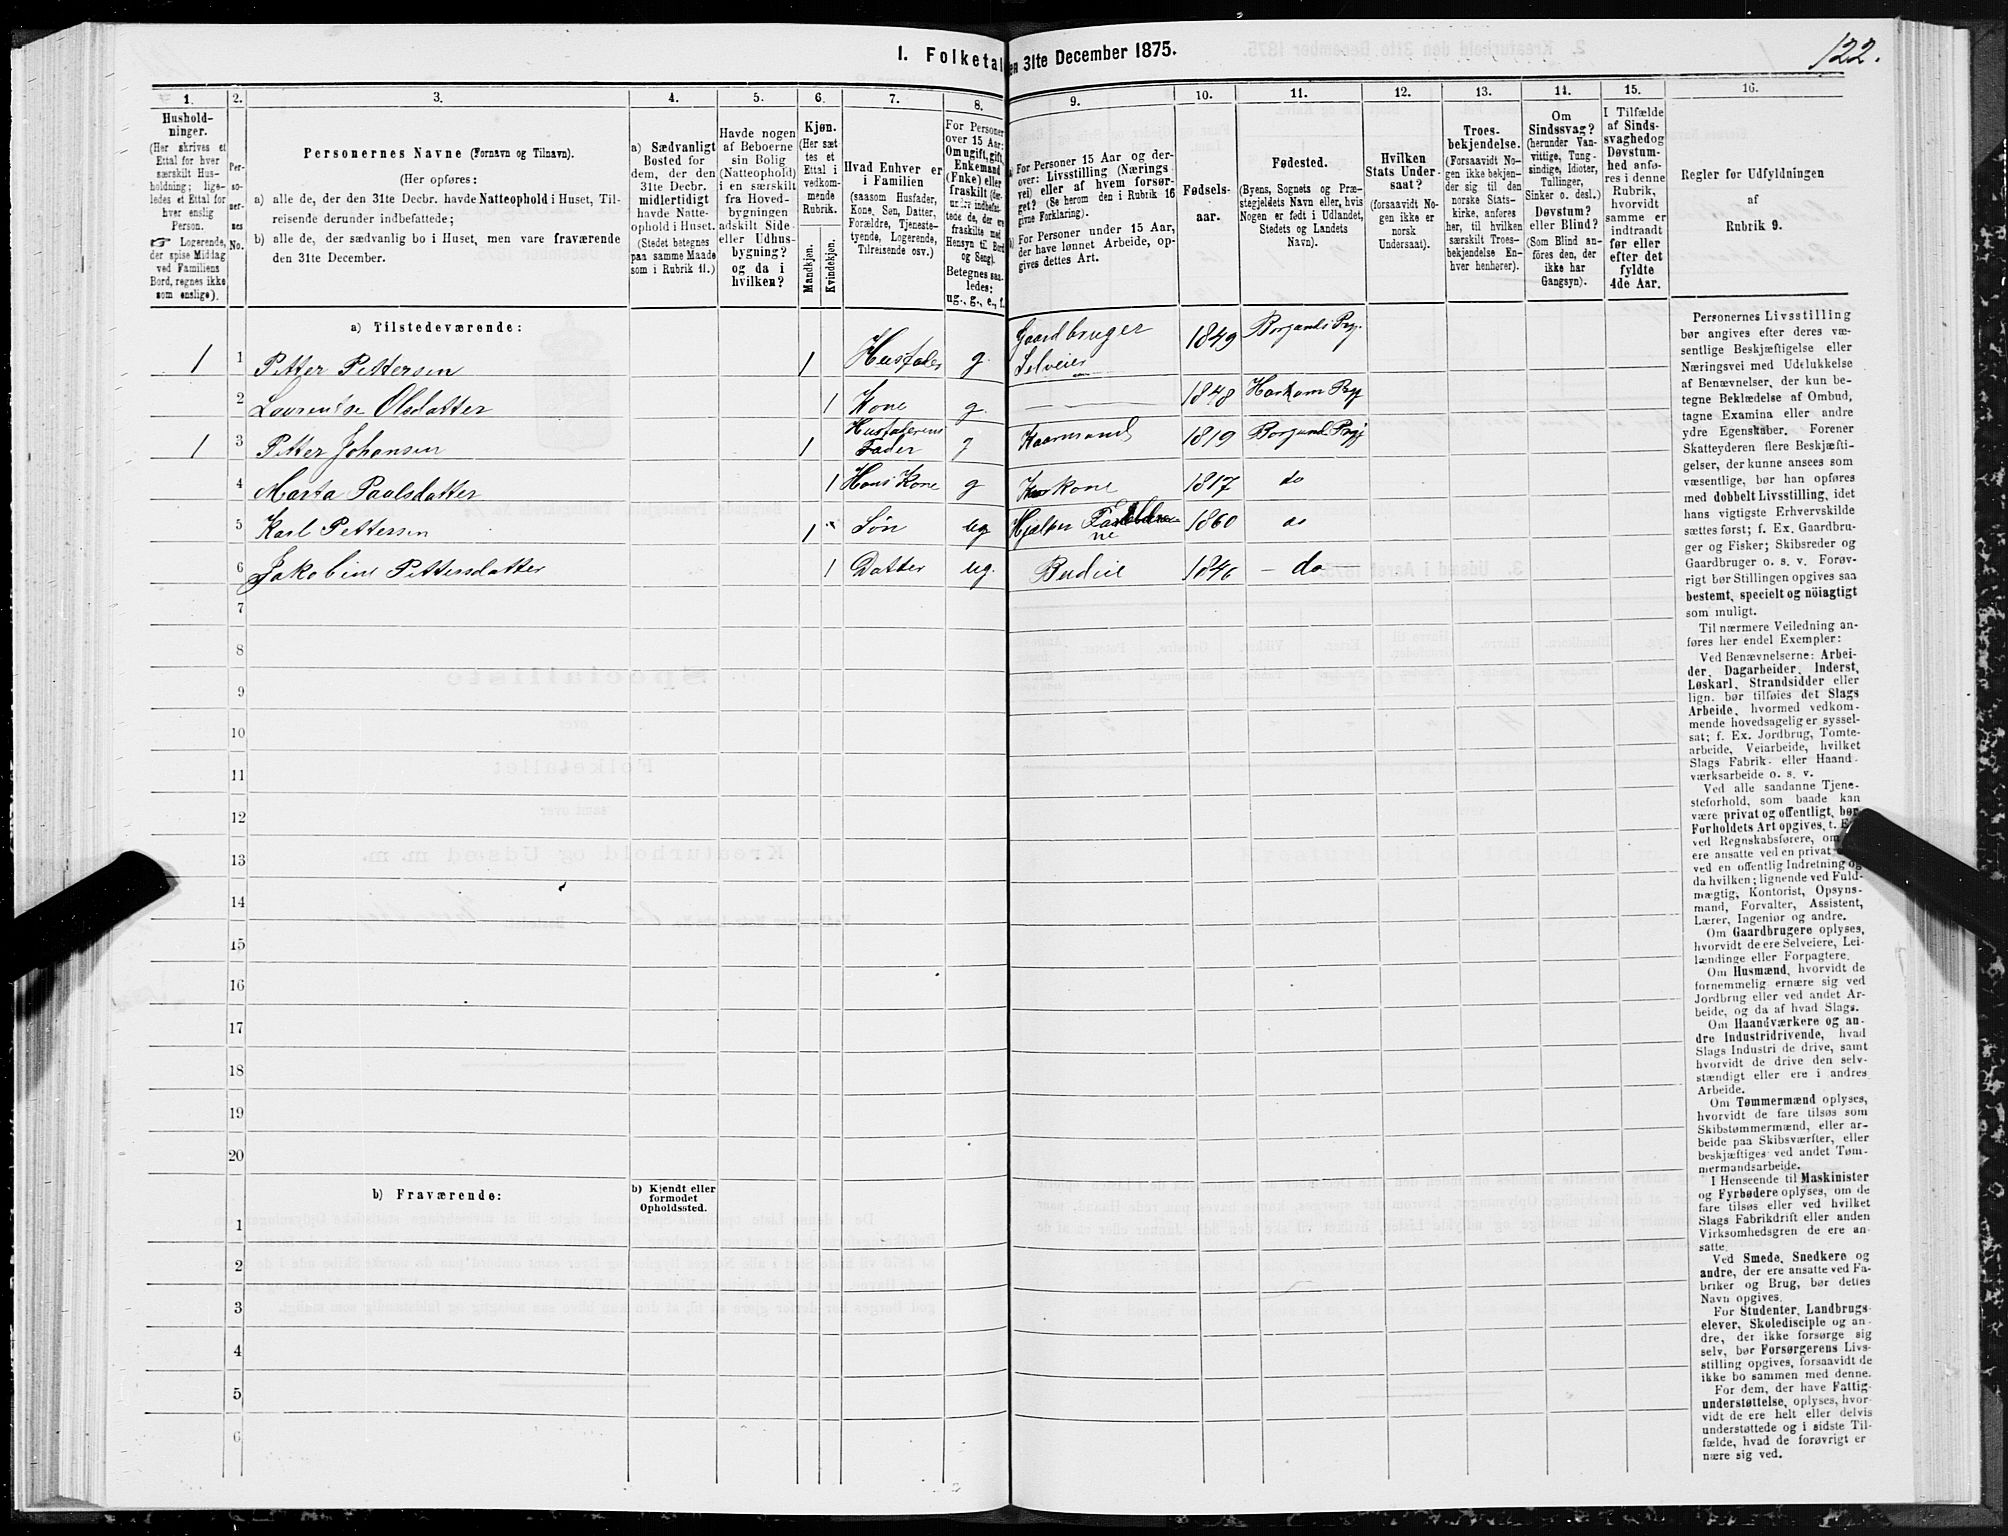 122.
1. Folketal den 31te December 1875.
1.
2.
3.
4.
5.
6.
7.
8.
9.
10.
11.
12.
13.
14.
15.
16.
Hushold-
ninger.
(Her skrives et
Ettal for hver
særskilt Hus-
holdning; lige-
ledes et Ettal for
hver enslig
Person.
☞ Logerende,
der spise Middag
ved Familiens
Bord, regnes ikke
som enslige).
Per-
so-
ner-
nes
No.
Personernes Navne (Fornavn og Tilnavn).
(Her opføres:
a) alle de, der den 31te Decbr. havde Natteophold i Huset, Til-
reisende derunder indbefattede;
b) alle de, der sædvanlig bo i Huset, men vare fraværende
den 31te December.
a) Sædvanligt
Bosted for
dem, der den
31te Decbr.
midlertidigt
havde Natte-
ophold i Huset.
(Stedet betegnes
paa samme Maade
som i Rubrik 11.)
Havde nogen
af Beboerne
sin Bolig
(Natteophold)
i en særskilt
fra Hoved-
bygningen
adskilt Side-
eller Udhus-
bygning?
og da i
hvilken?
Kjøn.
(Her sæt-
tes et
Ettal i
vedkom-
mende
Rubrik.
Mandkjøn.
Kvindekjøn.
Hvad Enhver er
i Familien
(saasom Husfader,
Kone, Søn, Datter,
Forældre, Tjeneste-
tyende, Logerende,
Tilreisende osv.)
For Personer
over 15 Aar:
Om ugift, gift,
Enkemand
(Enke) eller
fraskilt (der-
under indbefat-
tede de, der ere
fraskilte med
Hensyn til Bord
og Seng).
Betegnes saa-
ledes:
ug., g., e., f.
a) For Personer 15 Aar og der-
over: Livsstilling (Nærings-
vei) eller af hvem forsør-
get? (Se herom den i Rubrik 16
givne Forklaring).
b) For Personer under 15 Aar,
der have lønnet Arbeide, op-
gives dettes Art.
Fødsels-
aar.
Fødested.
(Byens, Sognets og Præ-
stegjeldets Navn eller, hvis
Nogen er født i Udlandet,
Stedets og Landets
Navn).
Hvilken
Stats Under-
saat?
(forsaavidt No-
gen ikke er
norsk
Undersaat).
Troes-
bekjendelse.
(Forsaavidt No-
gen ikke bekjen-
der sig til den
norske Stats-
kirke, anføres
her, til hvilken
særskilt Troes-
bekjendelse En-
hver henhører).
Om
Sindssvag?
(herunder Van-
vittige, Tung-
sindige, Idioter,
Tullinger,
Sinker o. desl.)
Døvstum?
eller Blind?
(Som Blind an-
føres den, der
ikke har
Gangsyn).
I Tilfælde
af Sinds-
svaghed og
Døvstum-
hed anfø-
res i denne
Rubrik,
hvorvidt
samme er
indtraadt
før eller
efter det
fyldte
4de Aar.
Regler for Udfyldningen
af
Rubrik 9.
a) Tilstedeværende:
1 1 Petter Pettersen 1 Husfader g. Gaardbruger Selveier 1849 Borgunds Prg.
2 Laurentse Olsdatter 1 Kone g. — 1848 Harham Prgj
1 3 Petter Johansen 1 Husfaderens Fader g Kaarmand 1819 Borgunds Prgj
4 Marta Paulsdatter 1 Hans Kone g Kone 1817 do
5 Karl Pettersen 1 Søn ug Hjælper Forældrene 1860 do
6 Jakobine Pettersdatter 1 Datter ug. Budeie 1846 - do -
7
8
9
10
11
12
13
14
15
16
17
18
19
20
b) Fraværende:
b) Kjendt eller
formodet
Opholdssted.
1
2
3
4
5
6
Personernes Livsstilling
bør angives efter deres væ-
sentlige Beskjæftigelse eller
Næringsvei med Udelukkelse
af Benævnelser, der kun be-
tegne Beklædelse af Ombud,
tagne Examina eller andre
ydre Egenskaber. Forener
Skatteyderen flere Beskjæfti-
gelser, der kunne ansees som
væsentlige, bør han opføres
med dobbelt Livsstilling, idet
hans vigtigste Erhvervskilde
sættes først; f. Ex. Gaardbru-
ger og Fisker; Skibsreder og
Gaardbruger o. s. v. Forøv-
rigt bør Stillingen opgives saa
bestemt, specielt og nöiagtigt
som muligt.
Til nærmere Veiledning an-
føres her endel Exempler:
Ved Benævnelserne: Arbei-
der, Dagarbeider, Inderst,
Løskarl, Strandsidder eller
lign. bør tilføies det Slags
Arbeide, hvormed vedkom-
mende hovedsagelig er syssel-
sat; f. Ex. Jordbrug, Tomte-
arbeide, Veiarbeide, hvilket
Slags Fabrik- eller Haand-
værksarbeide o. s. v.
Ved alle saadanne Tjene-
steforhold, som baade kan
være privat og offentligt, bør
Forholdets Art opgives, t. Ex.
ved Regnskabsførere, om
ere ansatte ved en privat
ved en offentlig Indretning og
da hvilken; lignende ved Fuld-
mægtig, Kontorist, Opsyns-
mand, Forvalter, Assistent,
Lærer, Ingeniør og andre.
Om Gaardbrugere oplyses,
hvorvidt de ere Selveiere, Lei-
lændinge eller Forpagtere.
Om Husmænd, hvorvidt de
fornemmelig ernære sig ved
Jordbrug eller ved andet Ar-
beide, og da af hvad Slags.
Om Haandværkere og an-
dre Industridrivende, hvad
Slags Industri de drive, samt
hvorvidt de drive den selv-
stændigt eller ere i andres
Arbeide.
Om Tømmermænd oplyses,
hvorvidt de fare tilsøs som
Skibstømmermænd, eller ar-
beide paa Skibsværfter, eller
beskjæftiges ved andet Tøm-
mermandsarbeide.
I Henseende til Maskinister
og Fyrbødere oplyses, om de
fare tilsøs eller ved hvilket
Slags Fabrikdrift eller anden
Virksomhedsgren de ere an-
satte.
Ved Smede, Snedkere og
andre, der ere ansatte ved Fa-
briker og Brug, bør dettes
Navn opgives.
For Studenter, Landbrugs-
elever, Skoledisciple og an-
dre, der ikke forsørge sig
selv, bør Forsørgerens Livs-
stilling opgives, forsaavidt de
ikke bo sammen med denne.
For dem, der have Fattig-
understøttelse, oplyses, hvor-
vidt de ere helt eller delvis
understøttede og i sidste Til-
fælde, hvad de forøvrigt er-
nære sig ved.